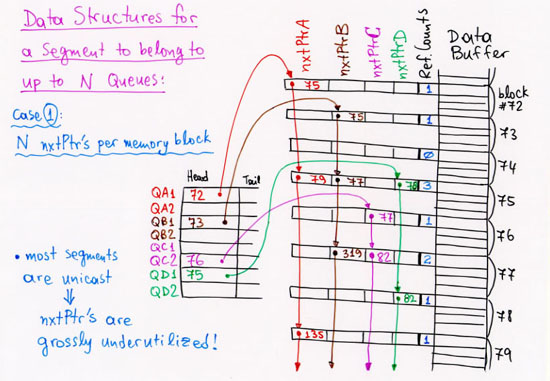 Data Structures for
a Segment to belong to
up to N Queues:
Case 1:
N nxtPtr's per memory block
nxtPtrA
nxtPtrB
nxtPtrC
nxtPtrD
Ref. Counts
Data
Buffer
75 1 block
#72
75 1 73
Ø 74
79 77 78 3 75
77 1 76
319 82 2 77
82 1 78
135 1 79
Head Tail
QA1 72
QA2
QB1 73
QB2
QC1
QC2 76
QD1 75
QD2
• most segments
are unicast
⇓
nxtPtr's are
grossly underutilized!